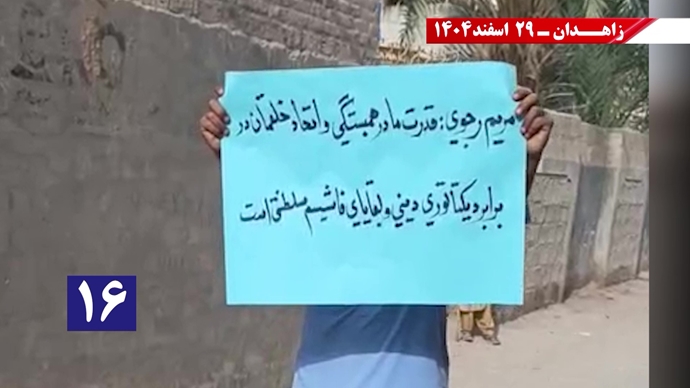 زاهـدان ـ ۲۹ اسفند۱۴۰۴
مریم رجوي: قدرت ما در همبستگي و اتحاد خلقمان در
برابر دیکتاتوري دیني و بقایاي فاشیسم سلطنتی است
۱۶